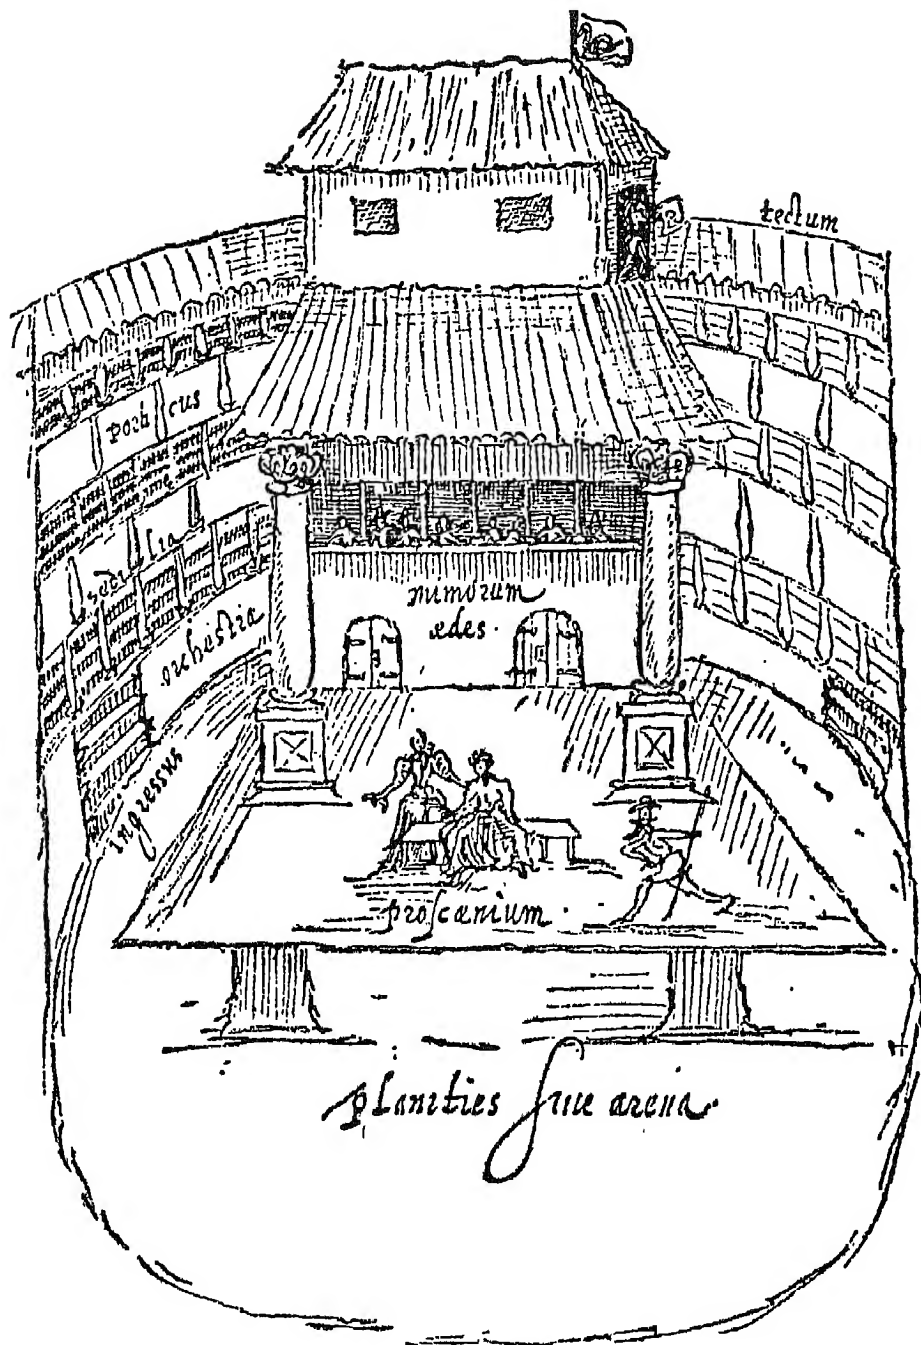 tectum
porticus
sedilia
orchestra
mimorum
ædes.
ingressus
proscænium.
planities siue arena.